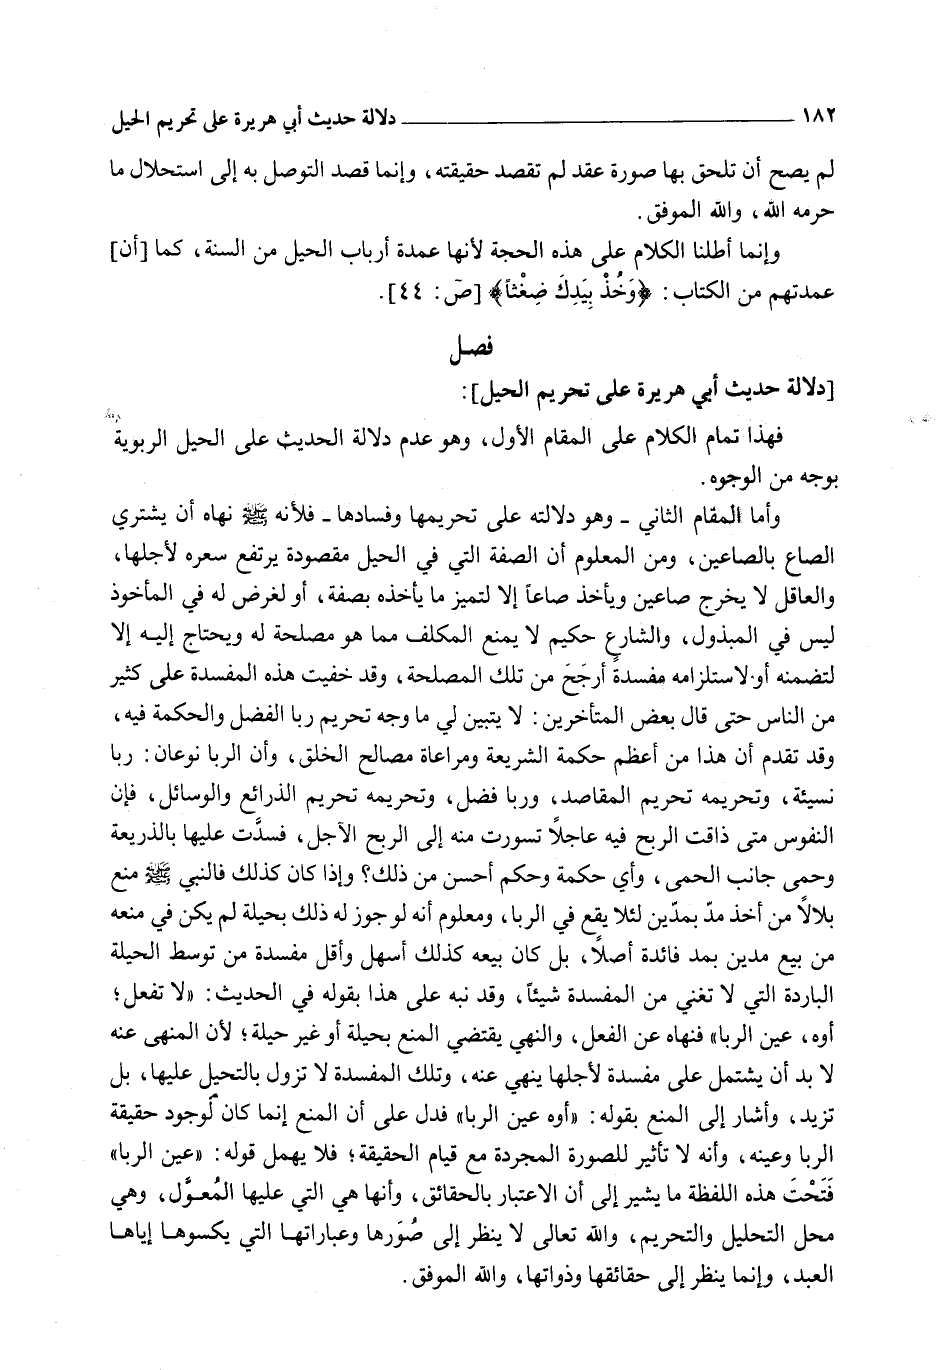 ١٨٢ ـــــــــــــــــــــــــــــــــ دلالة حديث أبي هريرة على تحريم الحيل
لم يصح أن تلحق بها صورة عقد لم تقصد حقيقته، وإنما قصد التوصل به إلى استحلال ما
حرمه الله، والله الموفق.
وإنما أطلنا الكلام على هذه الحجة لأنها عمدة أرباب الحيل من السنة، كما [أن]
عمدتهم من الكتاب: ﴿وَخُذْ بِيَدِكَ ضِغْثاً﴾ [صَ: ٤٤].
فصـل
[دلالة حديث أبي هريرة على تحريم الحيل]:
فهذا تمام الكلام على المقام الأول، وهو عدم دلالة الحديث على الحيل الربوية
بوجه من الوجوه.
وأما المقام الثاني ـ وهو دلالته على تحريمها وفسادها ـ فلأنه ﷺ نهاه أن يشتري
الصاع بالصاعين، ومن المعلوم أن الصفة التي في الحيل مقصودة يرتفع سعره لأجلها،
والعاقل لا يخرج صاعين ويأخذ صاعاً إلا لتميز ما يأخذه بصفة، أو لغرض له في المأخوذ
ليس في المبذول، والشارع حكيم لا يمنع المكلف مما هو مصلحة له ويحتاج إليـه إلا
لتضمنه أو لاستلزامه مفسدةً أرجَحَ من تلك المصلحة، وقد خفيت هذه المفسدة على كثير
من الناس حتى قال بعض المتأخرين: لا يتبين لي ما وجه تحريم ربا الفضل والحكمة فيه،
وقد تقدم أن هذا من أعظم حكمة الشريعة ومراعاة مصالح الخلق، وأن الربا نوعان: ربا
نسيئة، وتحريمه تحريم المقاصد، وربا فضل، وتحريمه تحريم الذرائع والوسائل، فإن
النفوس متى ذاقت الربح فيه عاجلاً تسورت منه إلى الربح الآجل، فسدَّت عليها بالذريعة
وحمى جانب الحمى، وأي حكمة وحكم أحسن من ذلك؟ وإذا كان كذلك فالنبي ﷺ منع
بلالاً من أخذ مدّ بمدّين لئلا يقع في الربا، ومعلوم أنه لو جوز له ذلك بحيلة لم يكن في منعه
من بيع مدين بمد فائدة أصلاً، بل كان بيعه كذلك أسهل وأقل مفسدة من توسط الحيلة
الباردة التي لا تغني من المفسدة شيئاً، وقد نبه على هذا بقوله في الحديث: «لا تفعل؛
أوه، عين الربا» فنهاه عن الفعل، والنهي يقتضي المنع بحيلة أو غير حيلة؛ لأن المنهى عنه
لا بد أن يشتمل على مفسدة لأجلها ينهي عنه، وتلك المفسدة لا تزول بالتحيل عليها، بل
تزيد، وأشار إلى المنع بقوله: «أوه عين الربا» فدل على أن المنع إنما كان لوجود حقيقة
الربا وعينه، وأنه لا تأثير للصورة المجردة مع قيام الحقيقة؛ فلا يهمل قوله: «عين الربا»
فَتَحْتَ هذه اللفظة ما يشير إلى أن الاعتبار بالحقائق، وأنها هي التي عليها المُعوَّل، وهي
محل التحليل والتحريم، والله تعالى لا ينظر إلى صُوَرها وعباراتهـا التي يكسوهـا إياهـا
العبد، وإنما ينظر إلى حقائقها وذواتها، والله الموفق.